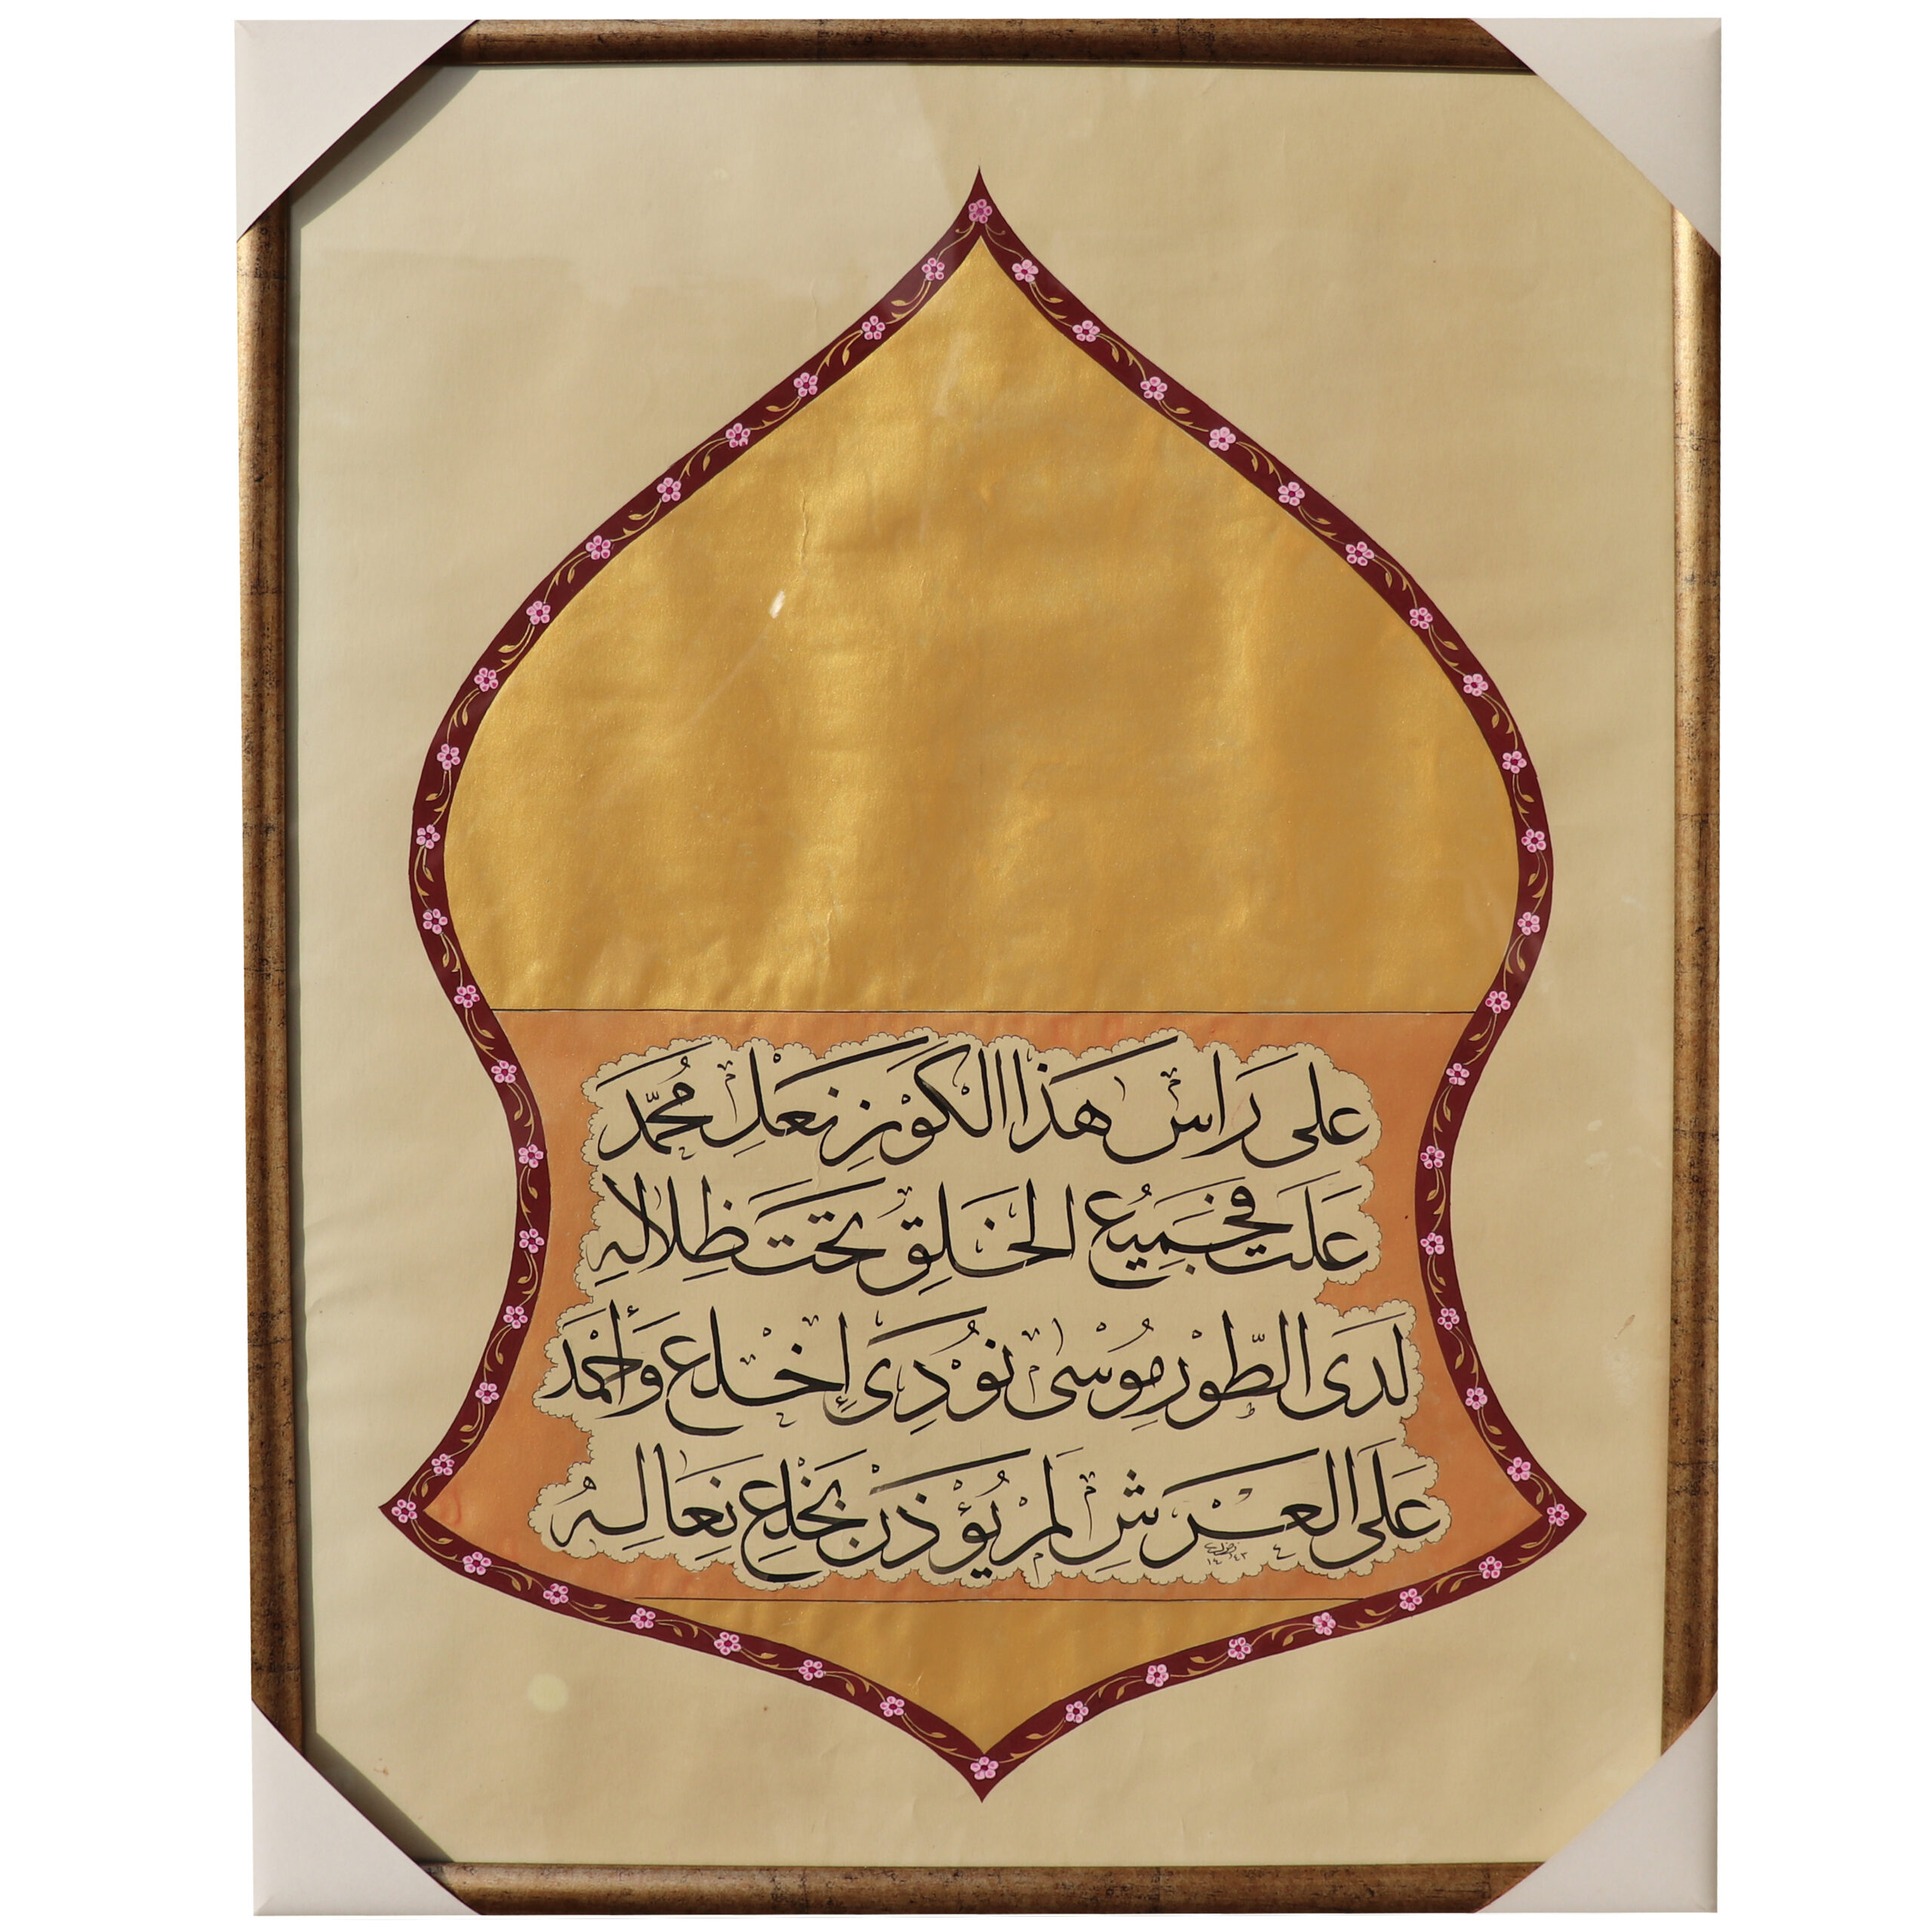 على رَاسِ هَذا الكَوْنِ نَعْلِ مُحَمَّد
عَلَت فَجَمِيعُ الخَلقِ تَحتَ ظِلالِهِ
لَدَى الطّورِ مُوْسٰى نُوْدِىَ إِخْلَع وَأَحْمَد
عَلَى العَرْشِ لَمْ يُؤْذَنْ بِخَلْعِ نِعَالِهُ
١٤٤٣